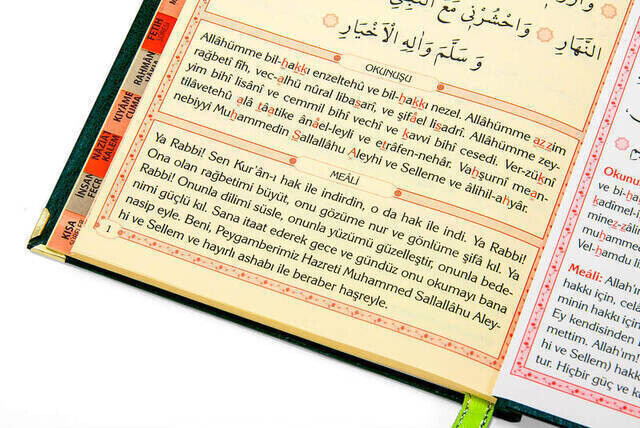 النَّهَارِ وَاحْشُرْنِي مَعَ النَّبِيِّ
وَسَلَّمَ وَاٰلِهِ الْاَخْيَارِ
OKUNUŞU
Allâhümme bil-hakkı enzeltehû ve bil-hakkı nezel. Allâhümme azzim
rağbetî fîh, vec-alhü nûral libasarî, ve şifâel lisadrî. Allâhümme zey-
yim bihî lisânî ve cemmil bihî vechî ve kavvi bihî cesedî. Ver-züknî
tilâvetehû alâ tâatike ânâel-leyli ve etrâfen-nehâr. Vahşurnî mean-
nebiyyi Muhammedin Sallallâhu Aleyhi ve Selleme ve âlihil-ahyâr.
MEÂLİ
Ya Rabbi! Sen Kur'ân-ı hak ile indirdin, o da hak ile indi. Ya Rabbi!
Ona olan rağbetimi büyüt, onu gözüme nur ve gönlüme şifâ kıl. Ya
Rabbi! Onunla dilimi süsle, onunla yüzümü güzelleştir, onunla bede-
nimi güçlü kıl. Sana itaat ederek gece ve gündüz onu okumayı bana
nasip eyle. Beni, Peygamberimiz Hazreti Muhammed Sallallâhu Aley-
hi ve Sellem ve hayırlı ashabı ile beraber haşreyle.
1
FETİH
SÛRESİ
RAHMÂN
VÂKIA
KIYÂME
CUMA
NÂZİAT
KALEM
İNSAN
FECR
KISA
SÛRELER
Okunu
ve bi-ha
kadîmel
minez-zâl
hume
Vel-hamdu li
Meâli: Allah'ı
hakkı için, cel
minin hakkı iç
Ey kendisinden
mettim. Allah'ım!
hi ve Sellem) hakk
tur. Hiçbir güç ve k